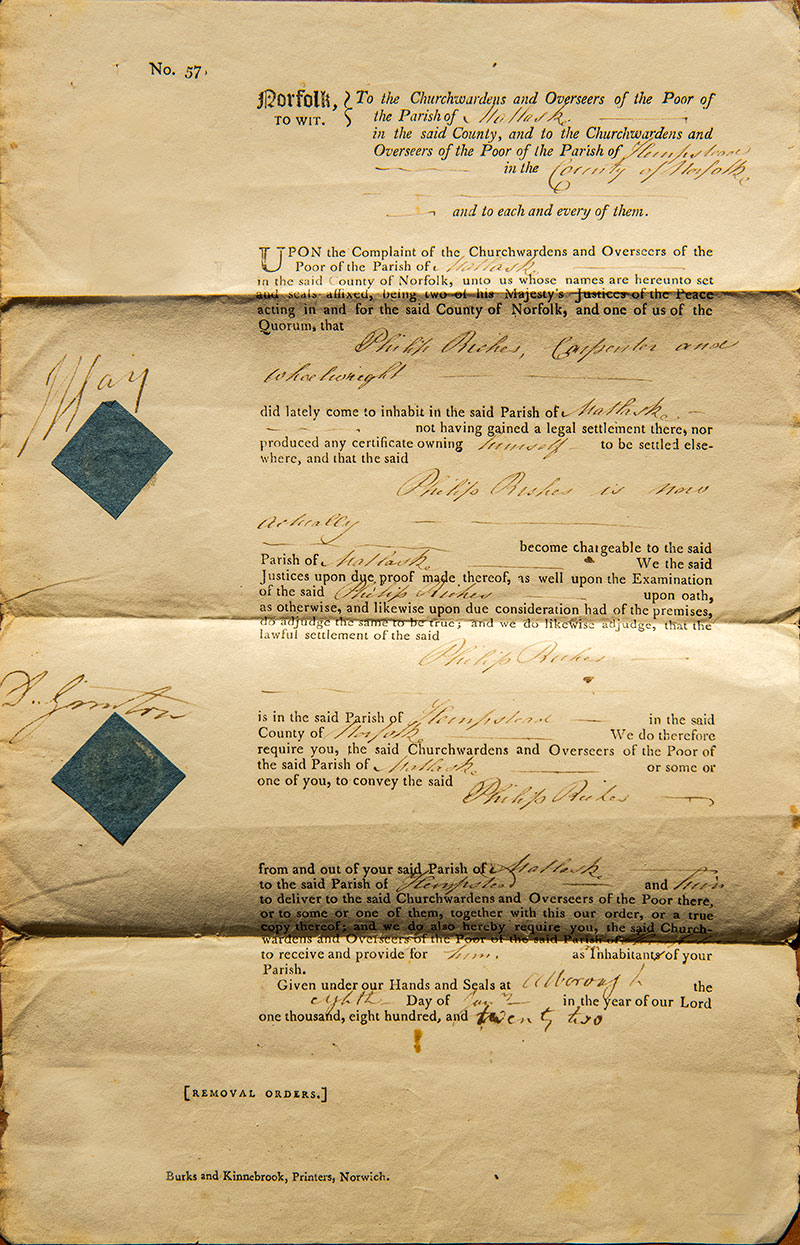 No. 57.
Norfolk, To the Churchwardens and Overseers of the Poor of
TO WIT. the Parish of Matlask
in the said County, and to the Churchwardens and
Overseers of the Poor of the Parish of Hempstead
in the County of Norfolk
and to each and every of them.
UPON the Complaint of the Churchwardens and Overseers of the
Poor of the Parish of Matlask
in the said County of Norfolk, unto us whose names are hereunto set
and seals affixed, being two of his Majesty's Justices of the Peace
acting in and for the said County of Norfolk, and one of us of the
Quorum, that
Philip Riches, Carpenter and
Wheelwright
did lately come to inhabit in the said Parish of Matlask
not having gained a legal settlement there, nor
produced any certificate owning himself to be settled else-
where, and that the said
Philip Riches is now
actually
become chargeable to the said
Parish of Matlask We the said
Justices upon due proof made thereof, as well upon the Examination
of the said Philip Riches upon oath,
as otherwise, and likewise upon due consideration had of the premises,
do adjudge the same to be true; and we do likewise adjudge, that the
lawful settlement of the said
Philip Riches
is in the said Parish of Hempstead in the said
County of Norfolk We do therefore
require you, the said Churchwardens and Overseers of the Poor of
the said Parish of Matlask or some or
one of you, to convey the said
Philip Riches
from and out of your said Parish of Matlask
to the said Parish of Hempstead and him
to deliver to the said Churchwardens and Overseers of the Poor there,
or to some or one of them, together with this our order, or a true
copy thereof; and we do also hereby require you, the said Church-
wardens and Overseers of the Poor of the said Parish of
to receive and provide for him. as Inhabitants of your
Parish.
Given under our Hands and Seals at Alborough the
eighth Day of Jany in the year of our Lord
one thousand, eight hundred, and twenty two
[REMOVAL ORDERS.]
Burks and Kinnebrook, Printers, Norwich.